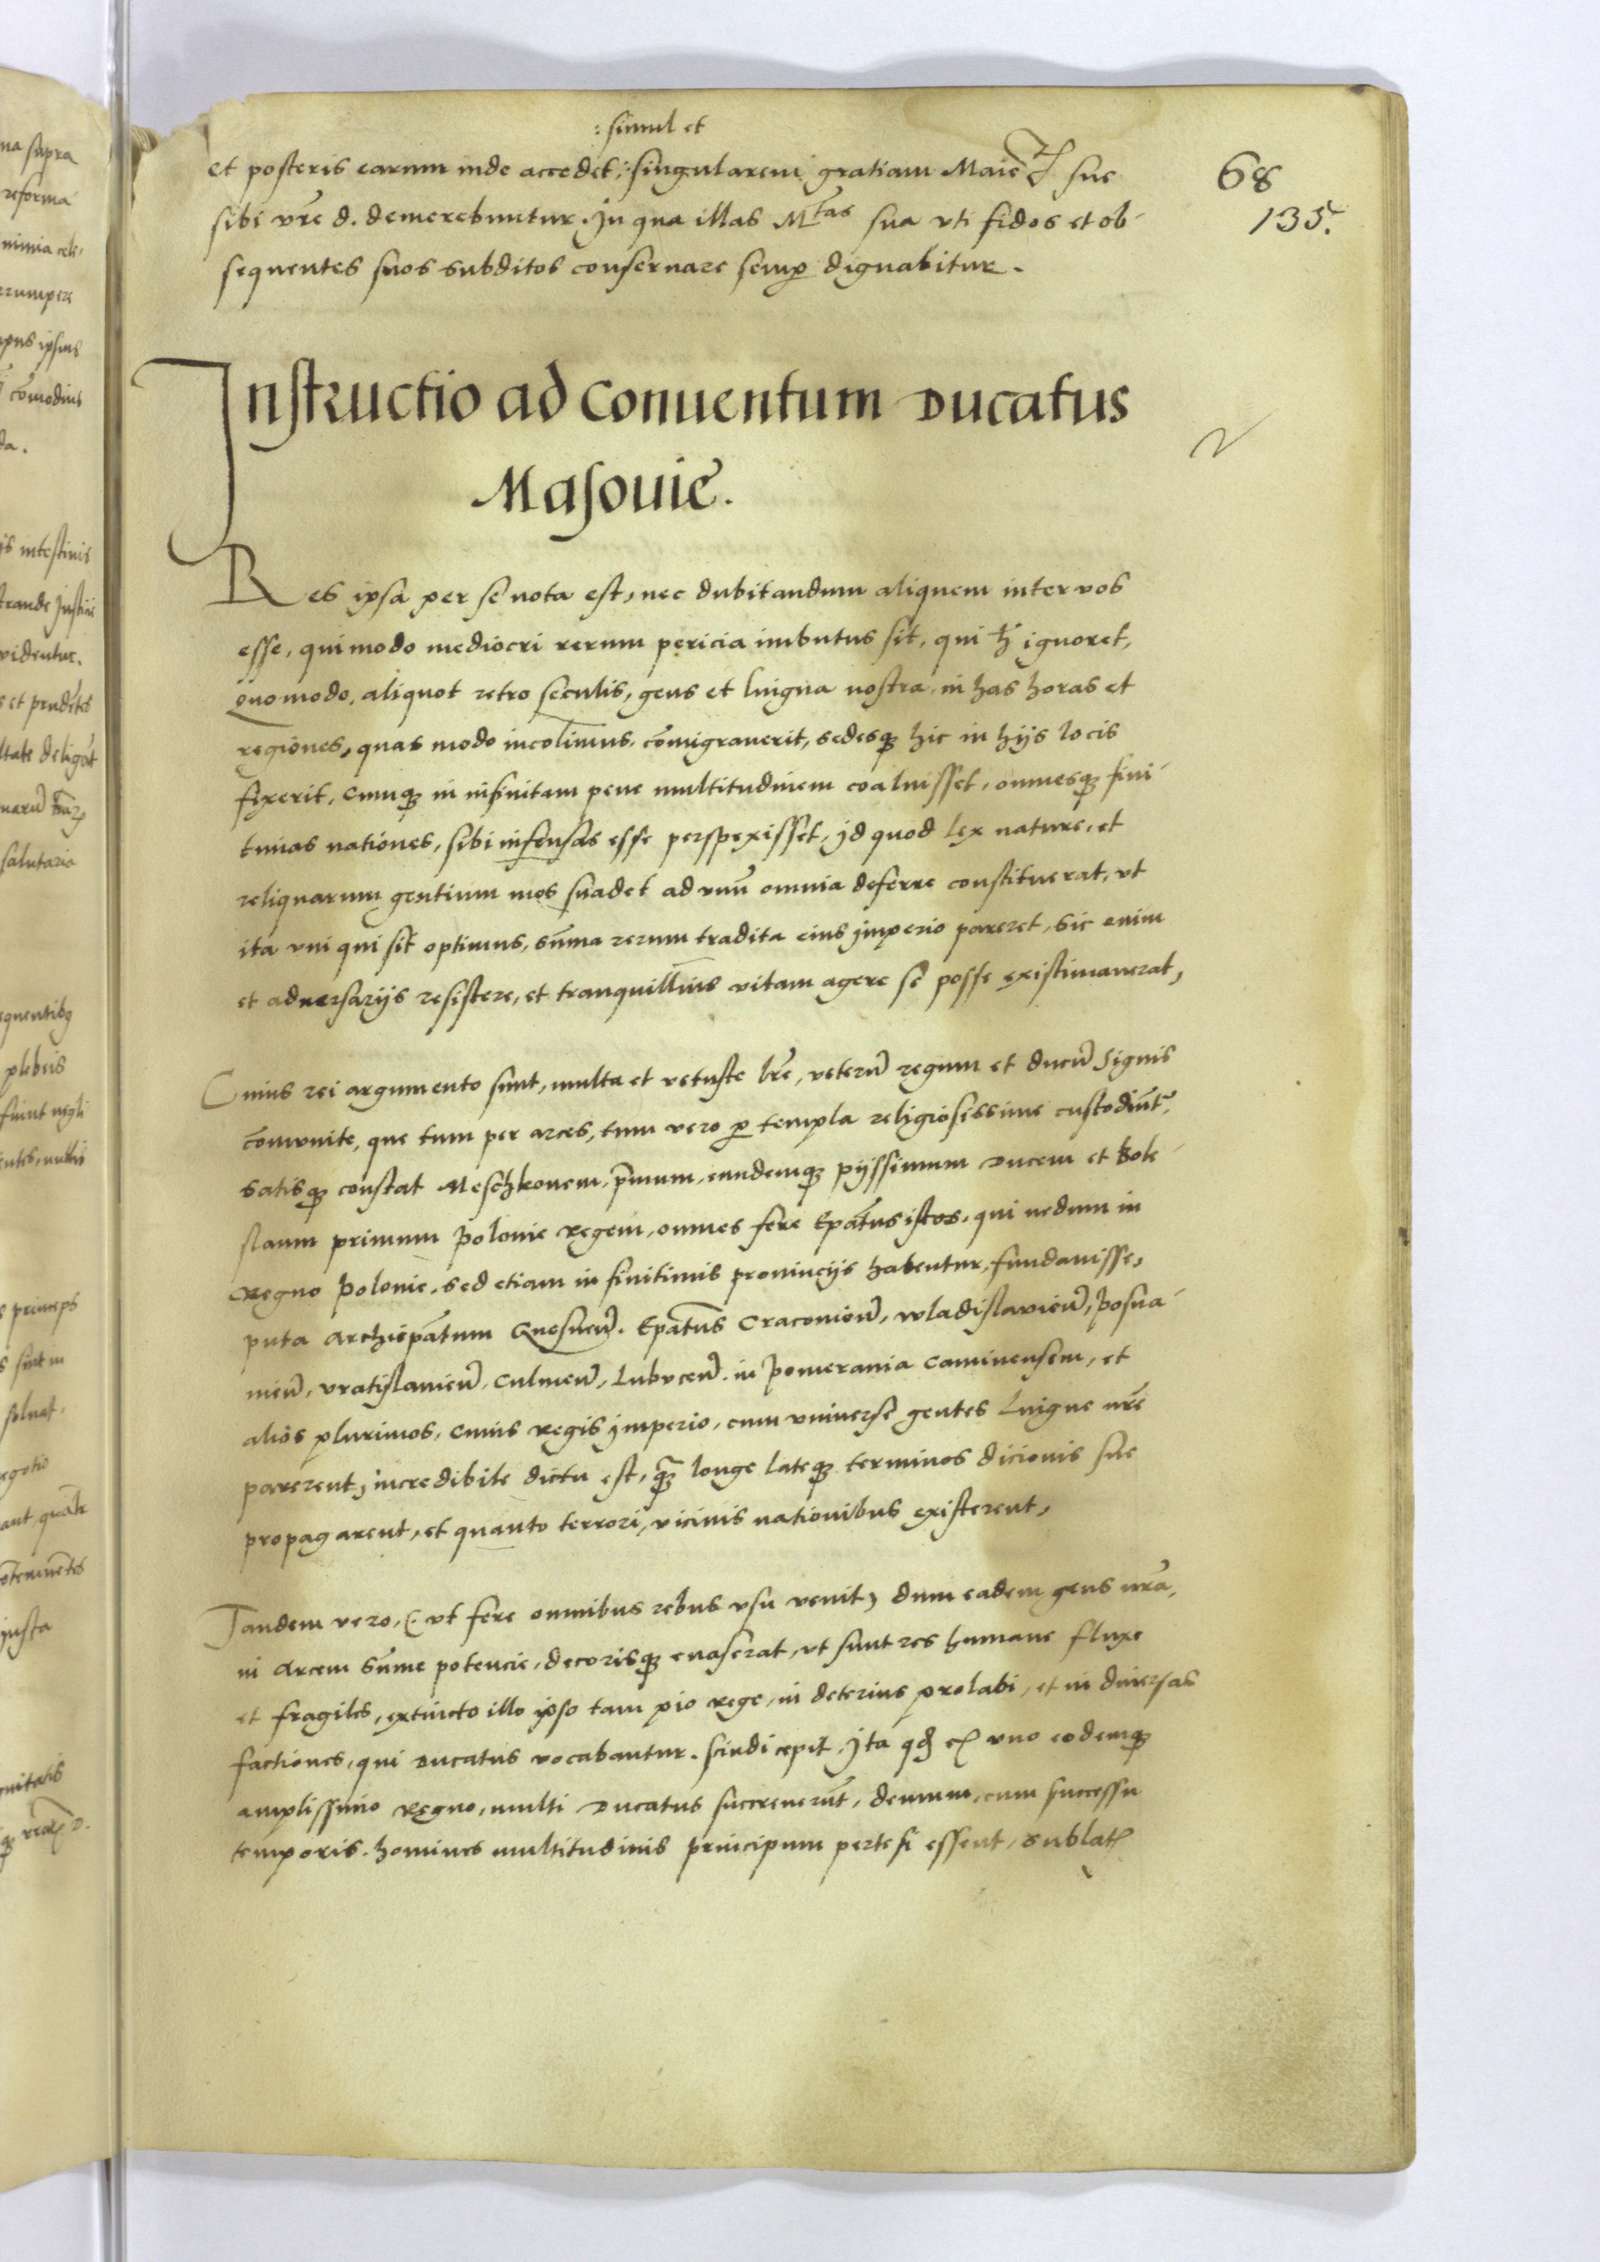 : simul et
et posteris earum inde accedet, : singularem gratiam Maie sue
sibi vr̃e d. demerebuntur. In qua illas Mtas sua vti fidos et ob-
sequentes suos subditos conseruare semp dignabitur.
68
135.
Instructio ad Conuentum Ducatus
Masouie.
Res ipsa per se nota est, nec dubitandum aliquem inter vos
esse, qui modo mediocri rerum pericia imbutus sit, qui h̃ ignoret,
quomodo, aliquot retro seculis, gens et lingua nostra, in has horas et
regiones, quas modo incolimus, com̃igrauerit, sedesq hic in hijs locis
fixerit, Cumq in infinitam pene multitudinem coaluisset, omnesq fini-
timas nationes, sibi infensas esse perspexisset, id quod lex nature, et
reliquarum gentium mos suadet ad vnũ omnia deferre constituerat, vt
ita vni qui sit optimus, sũma rerum tradita eius imperio pareret, sic enim
et aduersarijs resistere, et tranquillius vitam agere se posse existimauerat,
Cuius rei argumento sunt, multa et vetuste lr̃e, veterũ regum et ducũ signis
com̃unite, que tum per arces, tum vero p templa religiosissime custodiũt̃.
satisq constat Meschkonem, p̃mum, eundemq pijssimum Ducem et Bole-
slaum primum Polonie Regem, omnes fere Ep̃atus istos, qui nedum in
Regno Polonie, sed etiam in finitimis prouincijs habentur, fundauisse,
puta Archiep̃atum Gnesneñ. Ep̃atus Cracouieñ, Wladislauieñ, Posna-
nieñ, Vratislauieñ, Culmeñ, Lubuceñ. in Pomerania Caminensem, et
alios plurimos, Cuius Regis imperio, cum vniuerse gentes Lingue nr̃e
parerent, incredibile dictu est, q̃ longe lateq terminos dicionis sue
propagarent, et quanto terrori, vicinis nationibus existerent,
Tandem vero, (vt fere omnibus rebus vsu venit) dum eadem gens nr̃a,
in Arcem sũme potencie, decorisq euaserat, vt sunt res humane fluxe
et fragiles, extincto illo ipso tam pio rege, in deterius prolabi, et in diuersas
factiones, qui Ducatus vocabantur. scindi cepit, Ita qd ex vno eodemq
amplissimo Regno, multi Ducatus succreuerũt, demum, cum successu
temporis. homines multitudinis principum pertesi essent, sublat